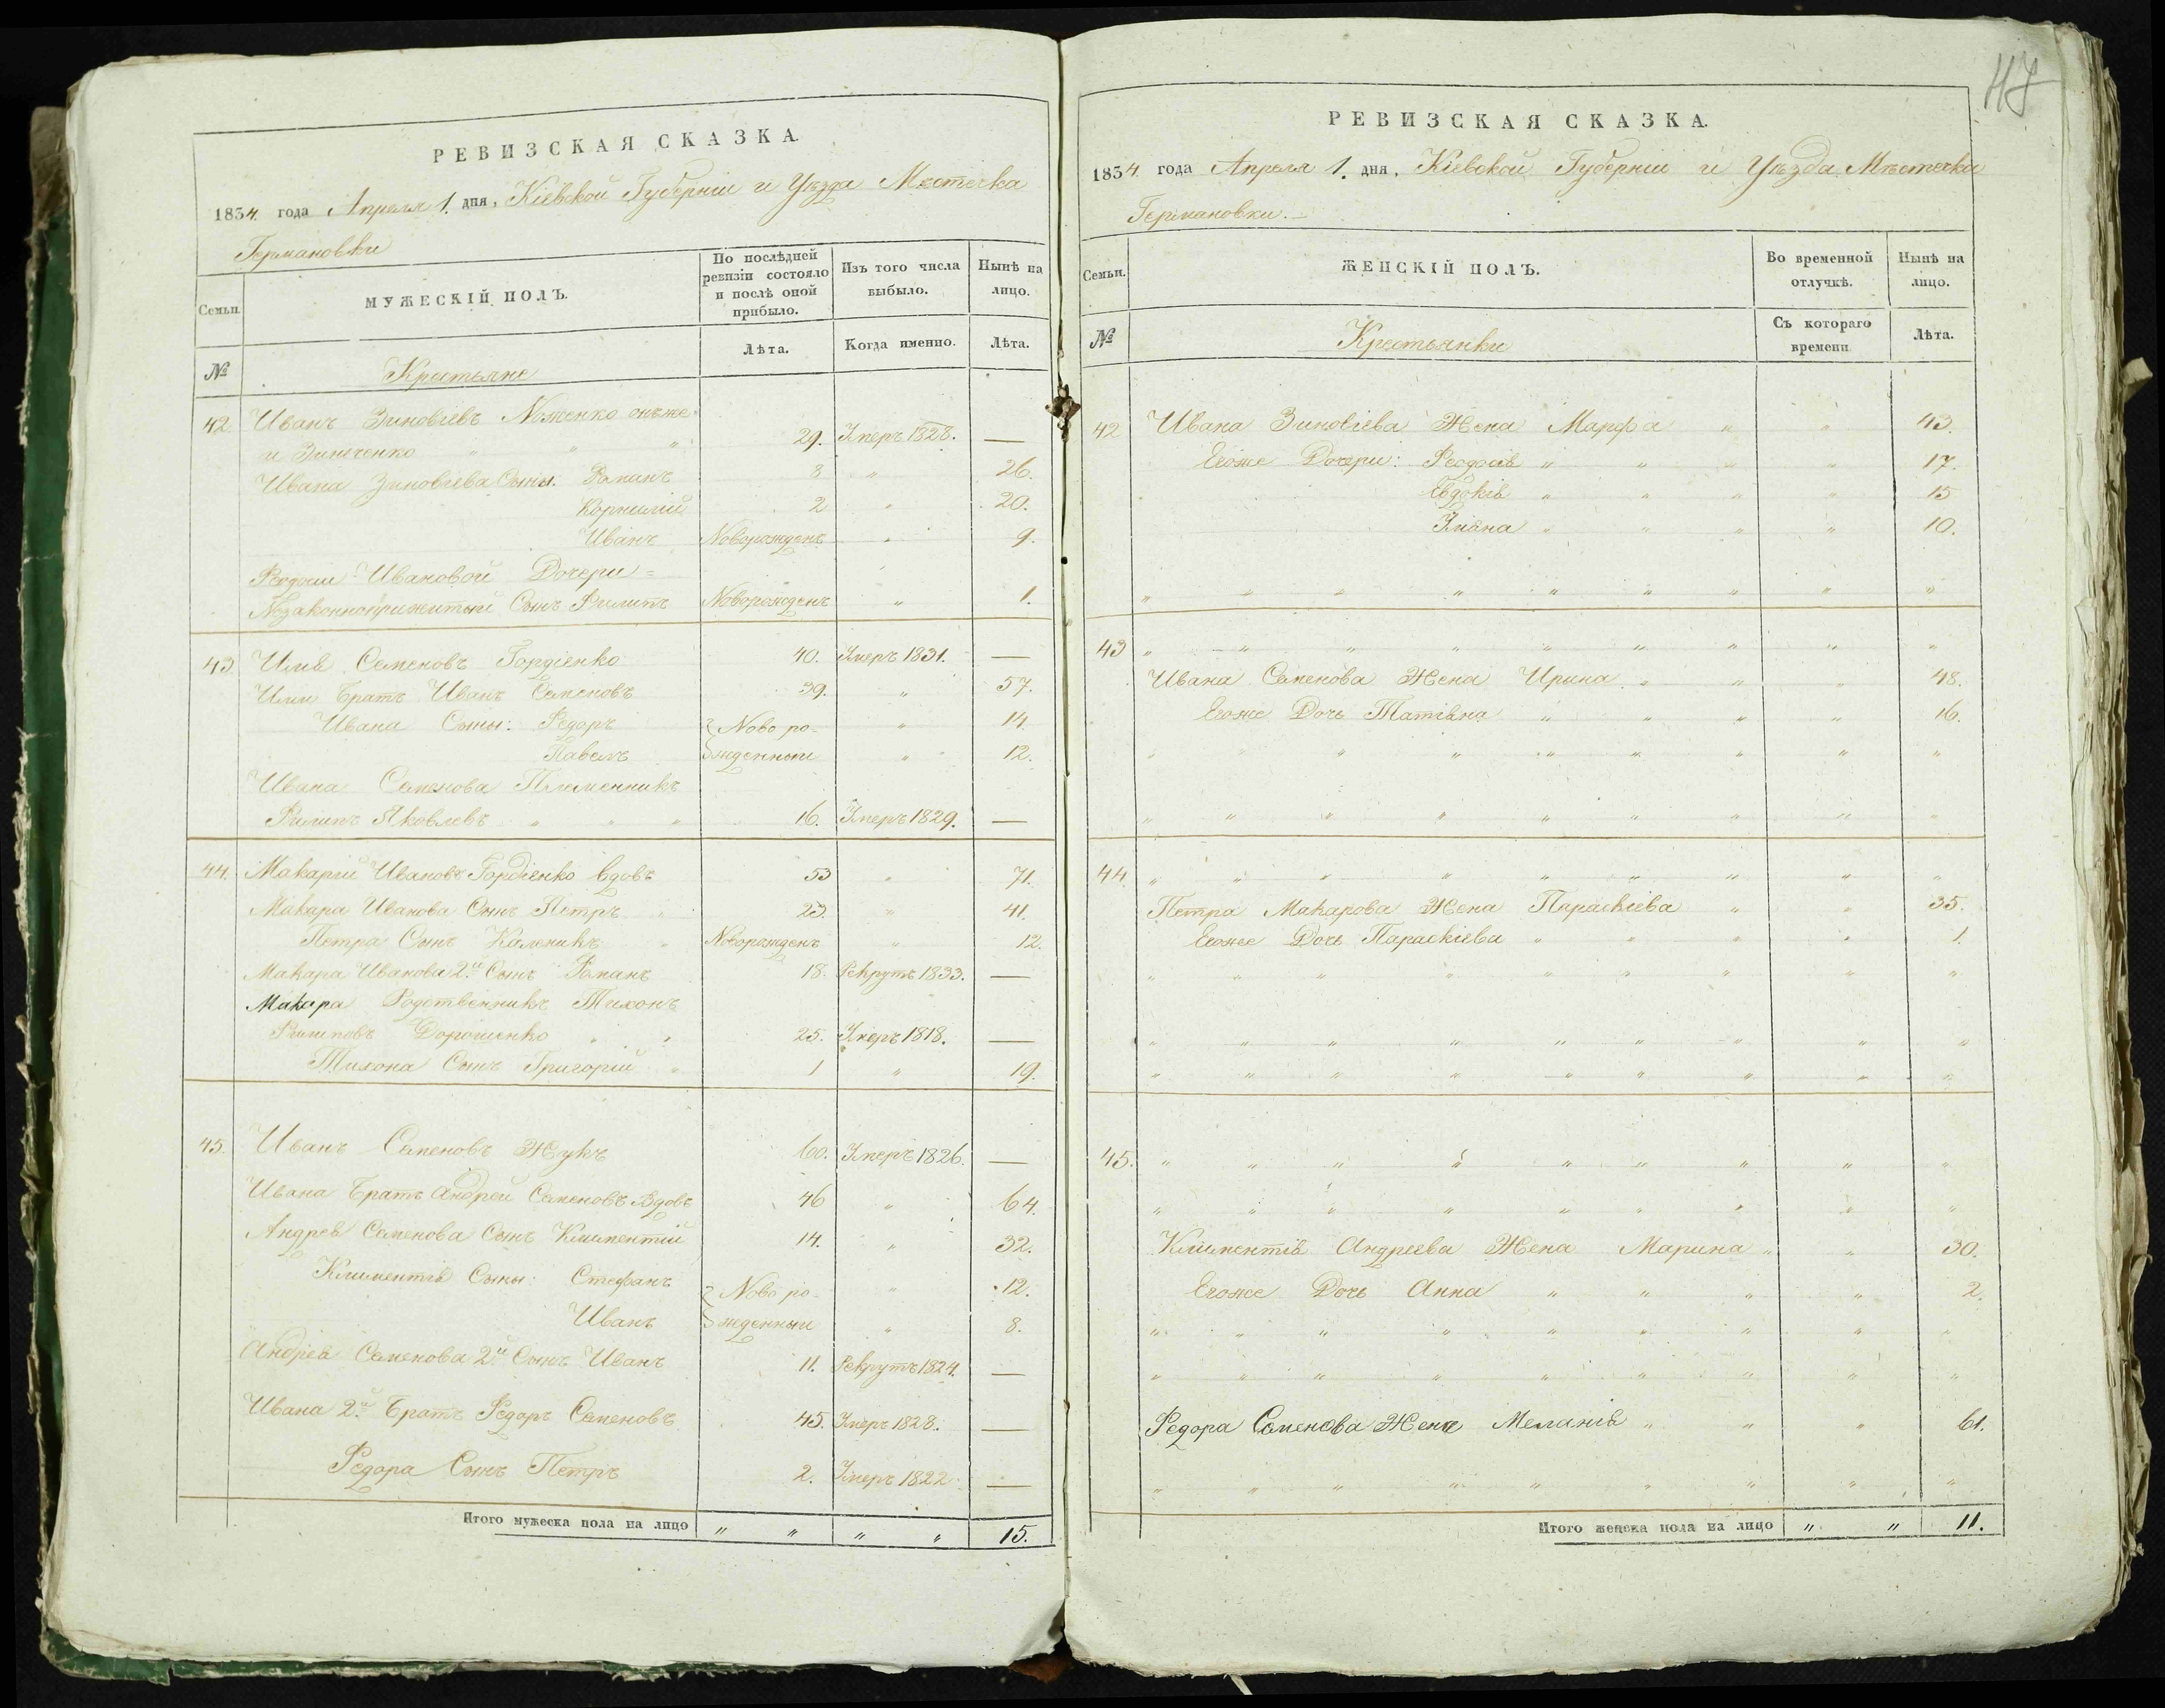 РЕВИЗСКАЯ СКАЗКА.
1834. года Апреля 1. дня, Кіевской Губерніи и Уѣзда Мѣстечка
Германовки
Семьи.
МУЖЕСКІЙ ПОЛЪ.
По послѣдней ревизіи состояло и послѣ оной прибыло.
Изъ того числа выбыло.
Нынѣ на лицо.
№
Крестьяне
Лѣта.
Когда именно.
Лѣта.
42. Иванъ Зиновіевъ Ноженко онъже
и Зинченко " " " 29. Умеръ 1828. —
Ивана Зиновіева Сыны: Романъ 8 " 26.
Корнилій 2 " 20.
Иванъ Новорожденъ " 9.
Феодосіи Ивановой Дочери =
Незаконноприжитый Сынъ Филипъ Новорожденъ " 1.
43 Илія Семеновъ Гордіенко 40. Умеръ 1831. —
Иліи Братъ Иванъ Семеновъ 39. " 57.
Ивана Сыны: Федоръ Новоро- " 14.
Павелъ жденныи " 12.
Ивана Семенова Племенникъ
Филипъ Яковлевъ " " " 16. Умеръ 1829. —
44. Макарій Ивановъ Гордіенко вдовъ 53 " 71.
Макара Иванова Сынъ Петръ " 23. " 41.
Петра Сынъ Каленикъ " Новорожденъ " 12.
Макара Иванова 2й Сынъ Романъ 18. Рекрутъ 1833. —
Макара Родственникъ Тихонъ
Филиповъ Дорошенко " " 25. Умеръ 1818. —
Тихона Сынъ Григорій " 1 " 19.
45. Иванъ Семеновъ Жукъ 60. Умеръ 1826. —
Ивана Братъ Андрей Семеновъ Вдовъ 46 " 64.
Андрея Семенова Сынъ Климентій 14. " 32.
Климентія Сыны: Стефанъ Новоро- " 12.
Иванъ жденныи " 8.
Андрея Семенова 2й Сынъ Иванъ 11. Рекрутъ 1824. —
Ивана 2й Братъ Федоръ Семеновъ 45. Умеръ 1828. —
Федора Сынъ Петръ 2. Умеръ 1822. —
Итого мужеска пола на лицо " " " " 15.
РЕВИЗСКАЯ СКАЗКА.
1834. года Апреля 1. дня, Кіевской Губерніи и Уѣзда Мѣстечка
Германовки. —
Семьи.
ЖЕНСКІЙ ПОЛЪ.
Во временной отлучкѣ.
Нынѣ на лицо.
№
Крестьянки
Съ котораго времени
Лѣта.
42 Ивана Зиновіева Жена Марфа " " 43.
Егоже Дочери: Феодосія " " " " 17.
Евдокія " " " " 15
Уліяна " " " " 10.
" " " " " " " " "
43 " " " " " " " " "
Ивана Семенова Жена Ирина " " " 48.
Егоже Дочь Татіяна " " " " 16.
" " " " " " " " "
" " " " " " " " "
44 " " " " " " " " "
Петра Макарова Жена Параскіева " " 35.
Егоже Дочь Параскіева " " " " 1.
" " " " " " " " "
" " " " " " " " "
" " " " " " " " "
45. " " " " " " " " "
" " " " " " " " "
Климентія Андреева Жена Марина " " 30.
Егоже Дочь Анна " " " " 2.
" " " " " " " " "
" " " " " " " " "
Федора Семенова Жена Меланія " " " 61.
" " " " " " " " "
Итого женска пола на лицо " " 11.